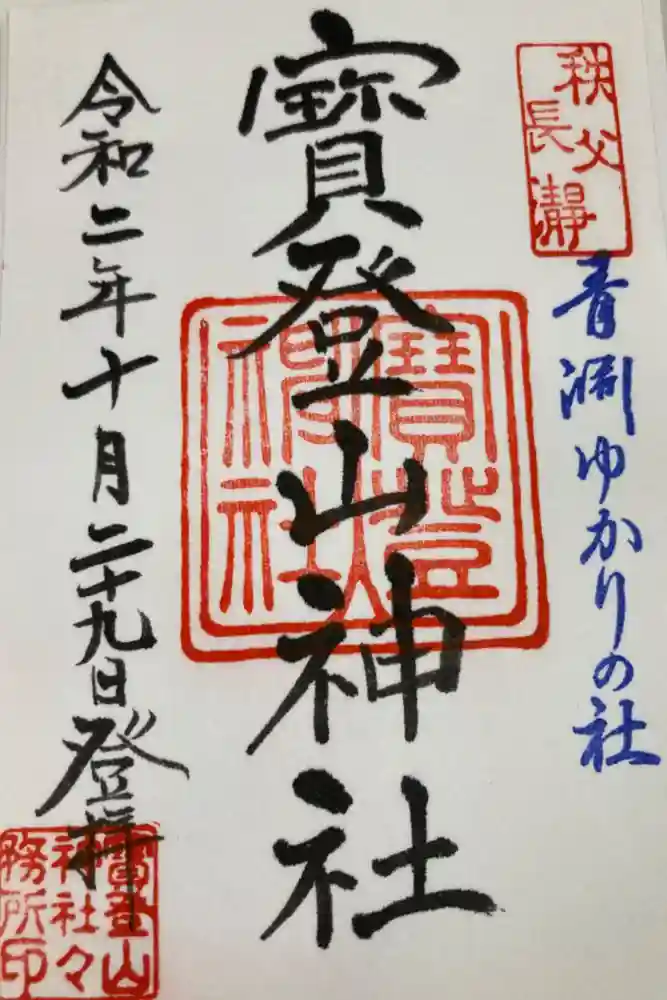 秩父
長瀞
青淵ゆかりの社
寳登山神社
寳登山
神社
令和二年十月二十九日登拝
寳登山
神社々
務所印